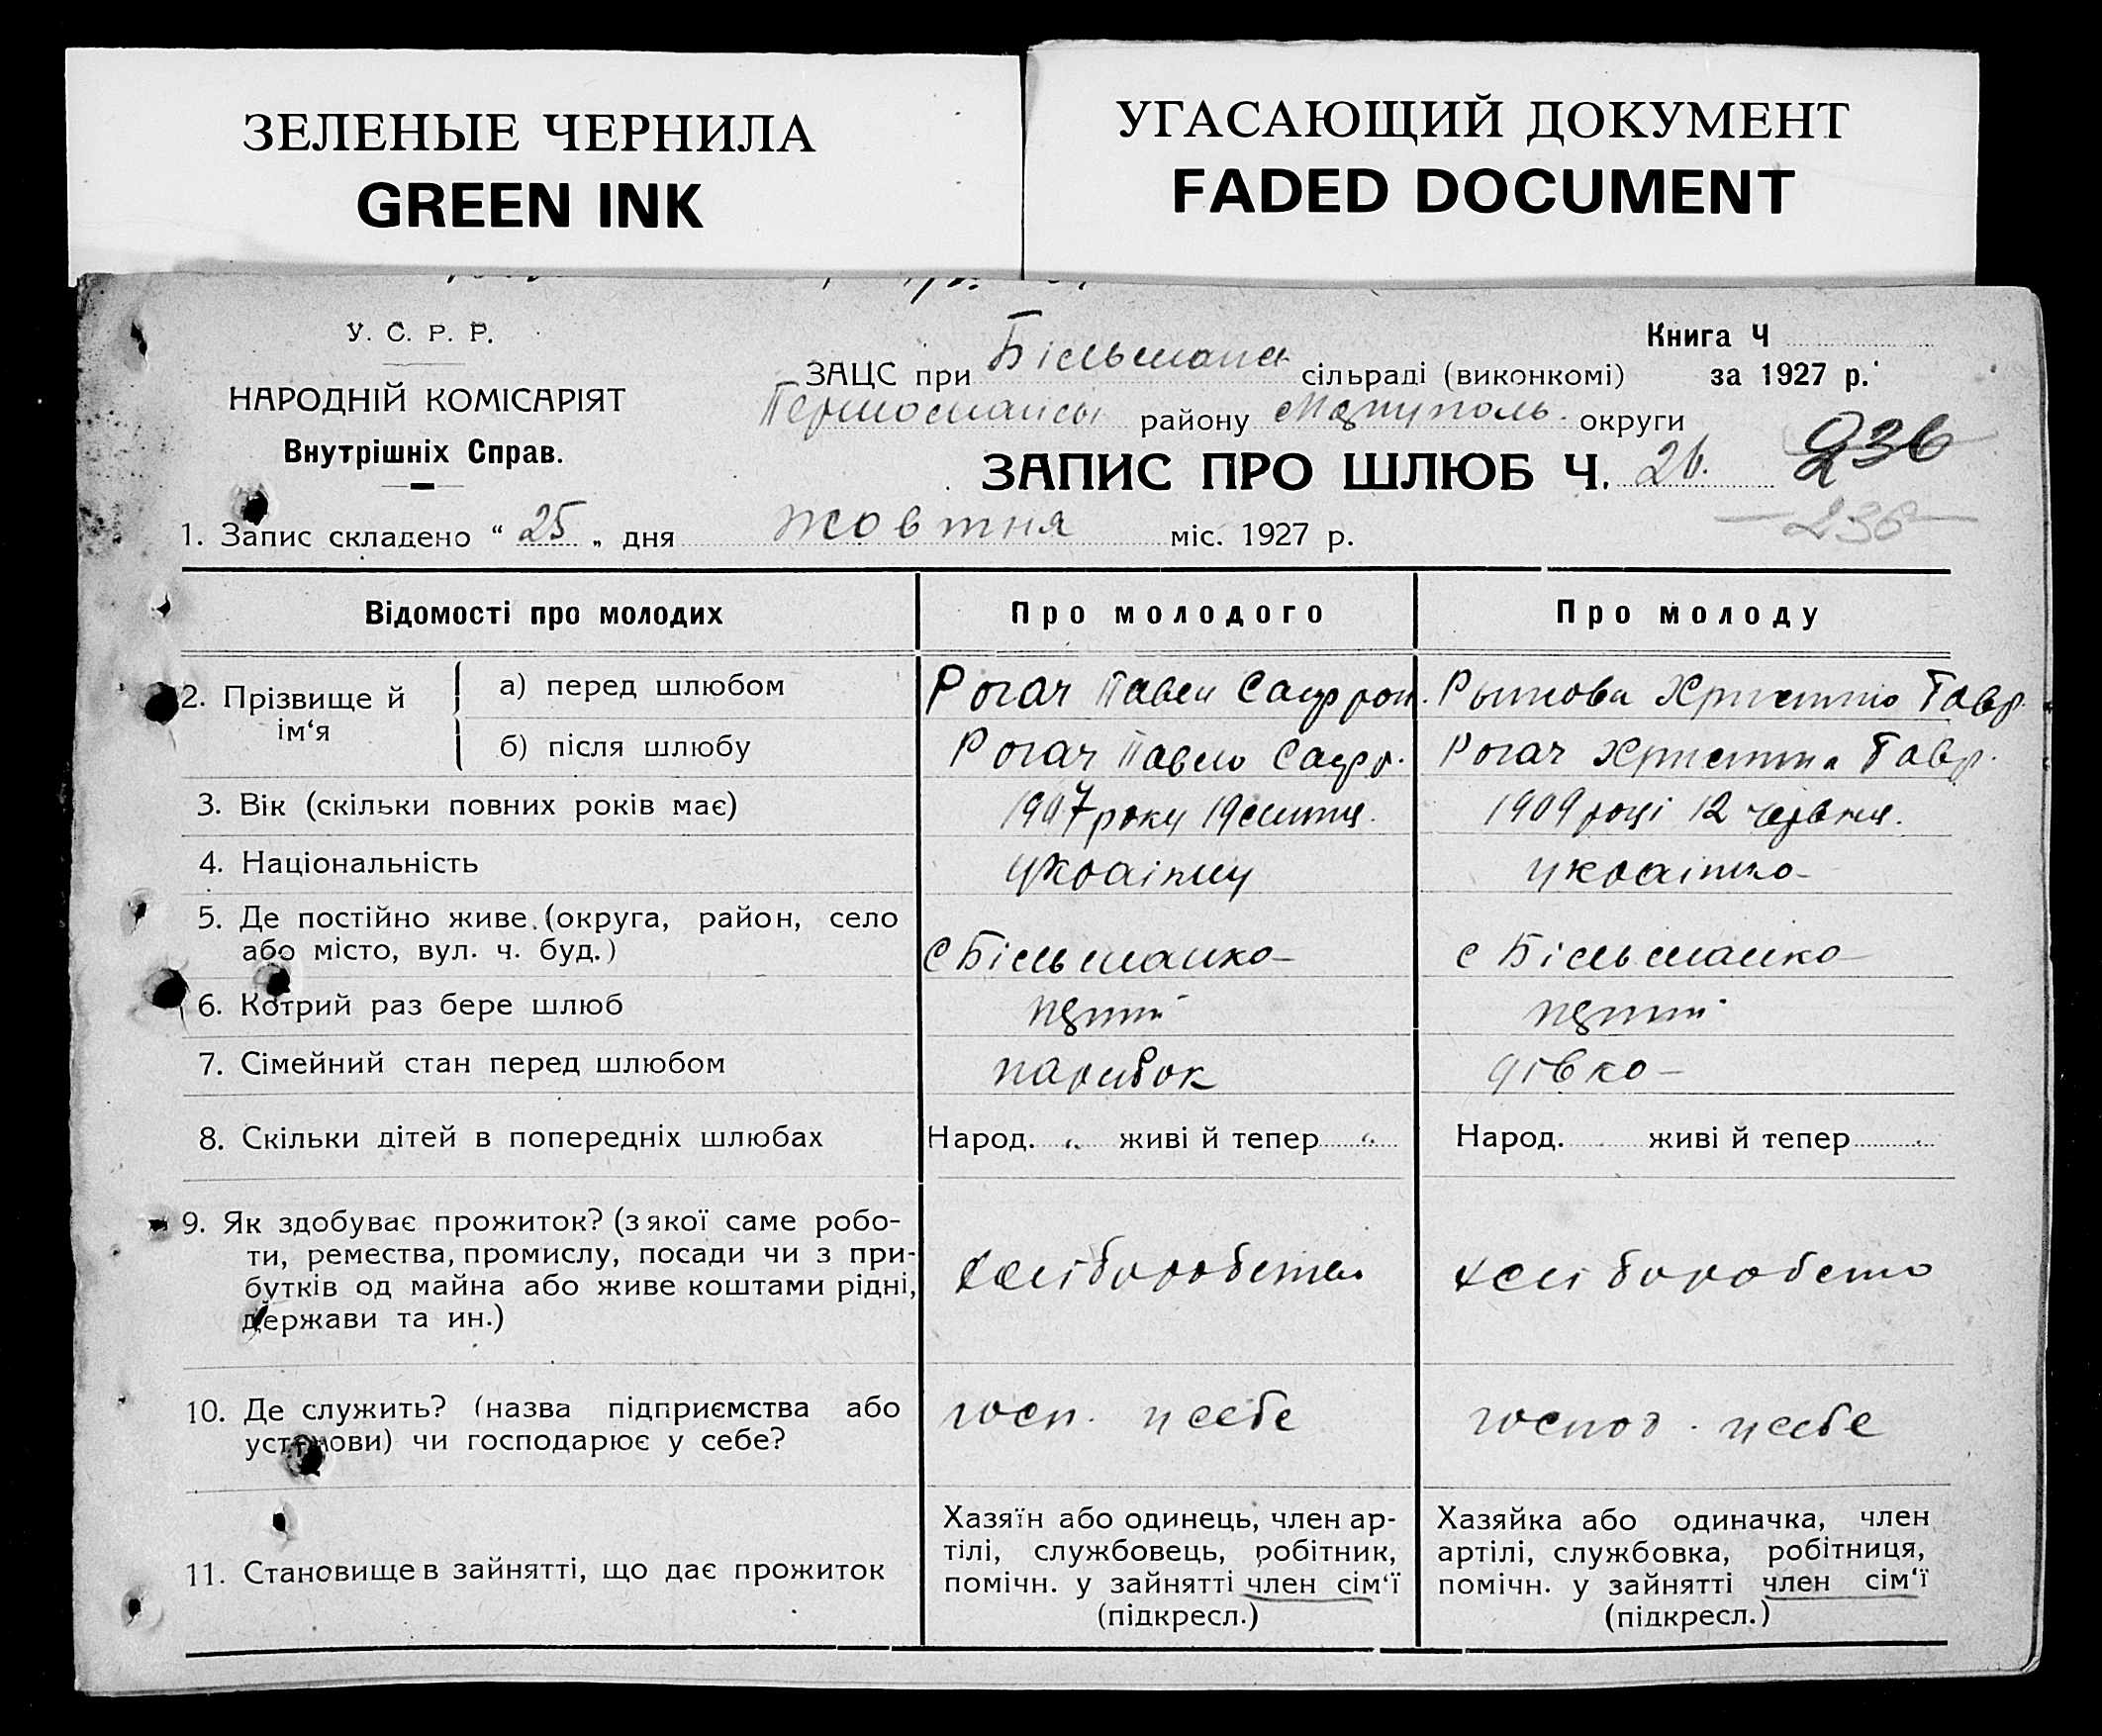 ЗЕЛЕНЫЕ ЧЕРНИЛА
GREEN INK
УГАСАЮЩИЙ ДОКУМЕНТ
FADED DOCUMENT
У. С. Р. Р.
НАРОДНІЙ КОМІСАРІЯТ
Внутрішніх Справ.
Книга Ч
ЗАЦС при Більмана сільраді (виконкомі) за 1927 р.
району Маріуполь. округи
ЗАПИС ПРО ШЛЮБ Ч. 26. 236
236
1. Запис складено “ 25 „ дня жовтня міс. 1927 р.
Відомості про молодих
Про молодого
Про молоду
2. Прізвище й ім‘я
а) перед шлюбом
Рогач Павло Сафрон.
Христина Гавр.
б) після шлюбу
Рогач Павло Сафр.
Рогач Христина Гавр.
3. Вік (скільки повних років має)
1907 року 19
1909 році 12 червня.
4. Національність
українец
українка
5. Де постійно живе (округа, район, село
або місто, вул. ч. буд.)
с Більманка
с Більманка
6. Котрий раз бере шлюб
перший
перший
7. Сімейний стан перед шлюбом
парубок
дівка
8. Скільки дітей в попередніх шлюбах
Народ. „ живі й тепер „
Народ. живі й тепер
9. Як здобуває прожиток? (з якої саме робо-
ти, ремества, промислу, посади чи з при-
бутків од майна або живе коштами рідні,
держави та ин.)
хліборобства
хліборобство
10. Де служить? (назва підприємства або
установи) чи господарює у себе?
госп. у себе
господ. у себе
11. Становище в зайнятті, що дає прожиток
Хазяїн або одинець, член ар-
тілі, службовець, робітник,
помічн. у зайнятті член сім‘ї
(підкресл.)
Хазяйка або одиначка, член
артілі, службовка, робітниця,
помічн. у зайнятті член сім‘ї
(підкресл.)